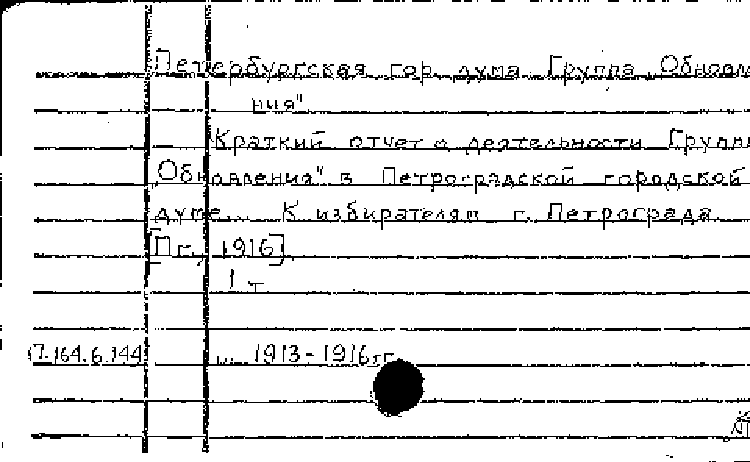 Петербургская гор. дума. Группа „Обновле
ния"
Краткий отчет о деятельности Группы
„Обновления" в Петроградской городской
думе... К избирателям г. Петрограда.
[Пг., 1916]
1 т.
17.164.6.144 ... 1913-1916 гг.